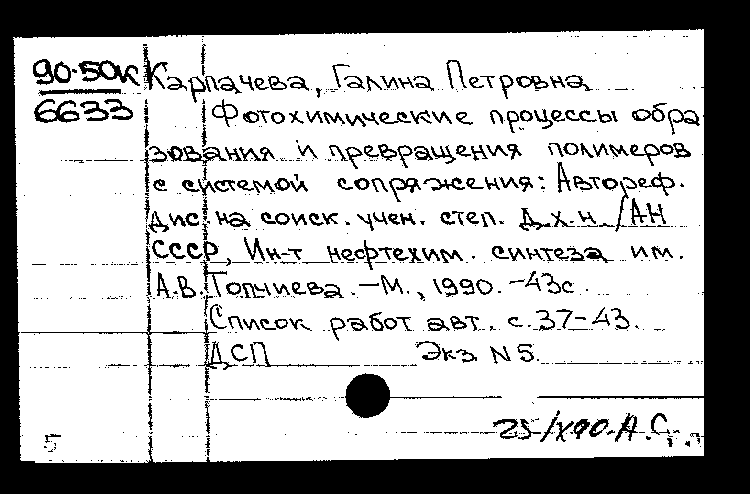 90-50К
6633
Карпачева, Галина Петровна
Фотохимические процессы обра
зования и превращения полимеров
с системой сопряжения: Автореф.
дис. на соиск. учен. степ. д.х.н. /АН
СССР, Ин-т нефтехим. синтеза им.
А.В. Топчиева. -М., 1990. -43с.
Список работ авт. с. 37-43.
ДСП Экз N 5.
25/X90. А.С.
5